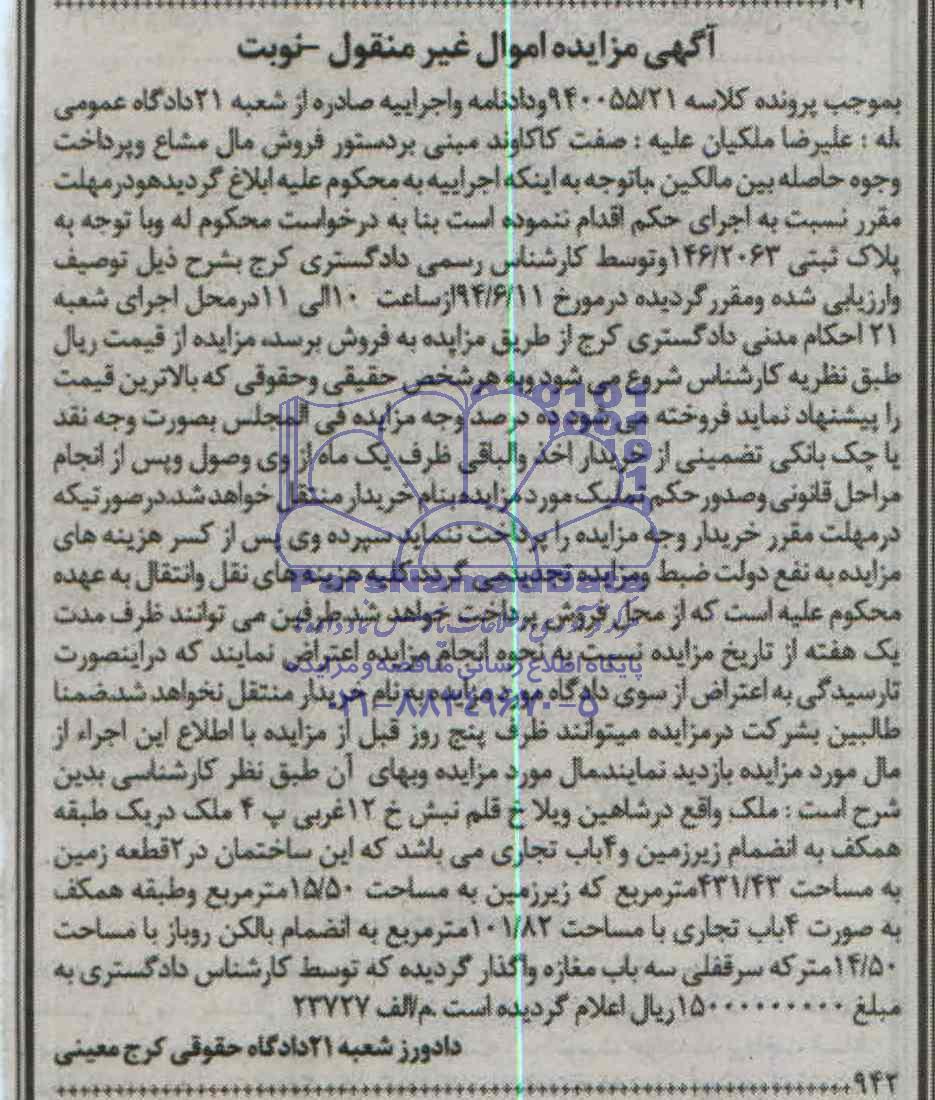 آگهی مزایده اموال غیر منقول -نوبت
بموجب پرونده کلاسه ۹۴۰۰۵۵/۲۱ودادنامه واجراییه صادره از شعبه ۲۱دادگاه عمومی
له : علیرضا ملکیان علیه : صفت کاکاوند مبنی بردستور فروش مال مشاع وپرداخت
وجوه حاصله بین مالکین .باتوجه به اینکه اجراییه به محکوم علیه ابلاغ گردیدهودرمهلت
مقرر نسبت به اجرای حکم اقدام ننموده است بنا به درخواست محکوم له وبا توجه به
پلاک ثبتی ۱۴۶/۲۰۶۳وتوسط کارشناس رسمی دادگستری کرج بشرح ذیل توصیف
وارزیابی شده ومقررگردیده درمورخ ۹۴/۶/۱۱ازساعت ۱۰الی ۱۱درمحل اجرای شعبه
۲۱ احکام مدنی دادگستری کرج از طریق مزایده به فروش برسد، مزایده از قیمت ریال
طبق نظریه کارشناس شروع می شود وبه هرشخص حقیقی وحقوقی که بالاترین قیمت
را پیشنهاد نماید فروخته می شود ده درصد وجه مزایده فی المجلس بصورت وجه نقد
یا چک بانکی تضمینی از خریدار اخذ والباقی ظرف یک ماه از وی وصول وپس از انجام
مراحل قانونی وصدور حکم تملیک مورد مزایده بنام خریدار منتقل خواهد شد.درصورتیکه
درمهلت مقرر خریدار وجه مزایده را پرداخت ننماید سپرده وی پس از کسر هزینه های
مزایده به نفع دولت ضبط ومزایده تجدیدمی گردد.کلیه هزینه های نقل وانتقال به عهده
محکوم علیه است که از محل فروش پرداخت خواهد شد.طرفین می توانند ظرف مدت
یک هفته از تاریخ مزایده نسبت به نحوه انجام مزایده اعتراض نمایند که دراینصورت
تارسیدگی به اعتراض از سوی دادگاه مورد مزایده به نام خریدار منتقل نخواهد شد.ضمنا
طالبین بشرکت درمزایده میتوانند ظرف پنج روز قبل از مزایده با اطلاع این اجراء از
مال مورد مزایده بازدید نمایند.مال مورد مزایده وبهای آن طبق نظر کارشناسی بدین
شرح است : ملک واقع درشاهین ویلا خ قلم نبش خ ۱۲غربی پ ۴ ملک دریک طبقه
همکف به انضمام زیرزمین و۴باب تجاری می باشد که این ساختمان در۲قطعه زمین
به مساحت ۴۳۱/۴۳مترمربع که زیرزمین به مساحت ۱۵/۵۰مترمربع وطبقه همکف
به صورت ۴باب تجاری با مساحت ۱۰۱/۸۲مترمربع به انضمام بالکن روباز با مساحت
۱۴/۵۰مترکه سرقفلی سه باب مغازه واگذار گردیده که توسط کارشناس دادگستری به
مبلغ ۱۵۰۰۰۰۰۰۰۰۰ریال اعلام گردیده است .م/الف ۲۳۷۲۷
دادورز شعبه ۲۱دادگاه حقوقی کرج معینی
۹۴۲
ParsNamadData
پایگاه اطلاع رسانی مناقصه و مزایده
۰۲۱-۸۸۳۴۹۶۷۰-۵